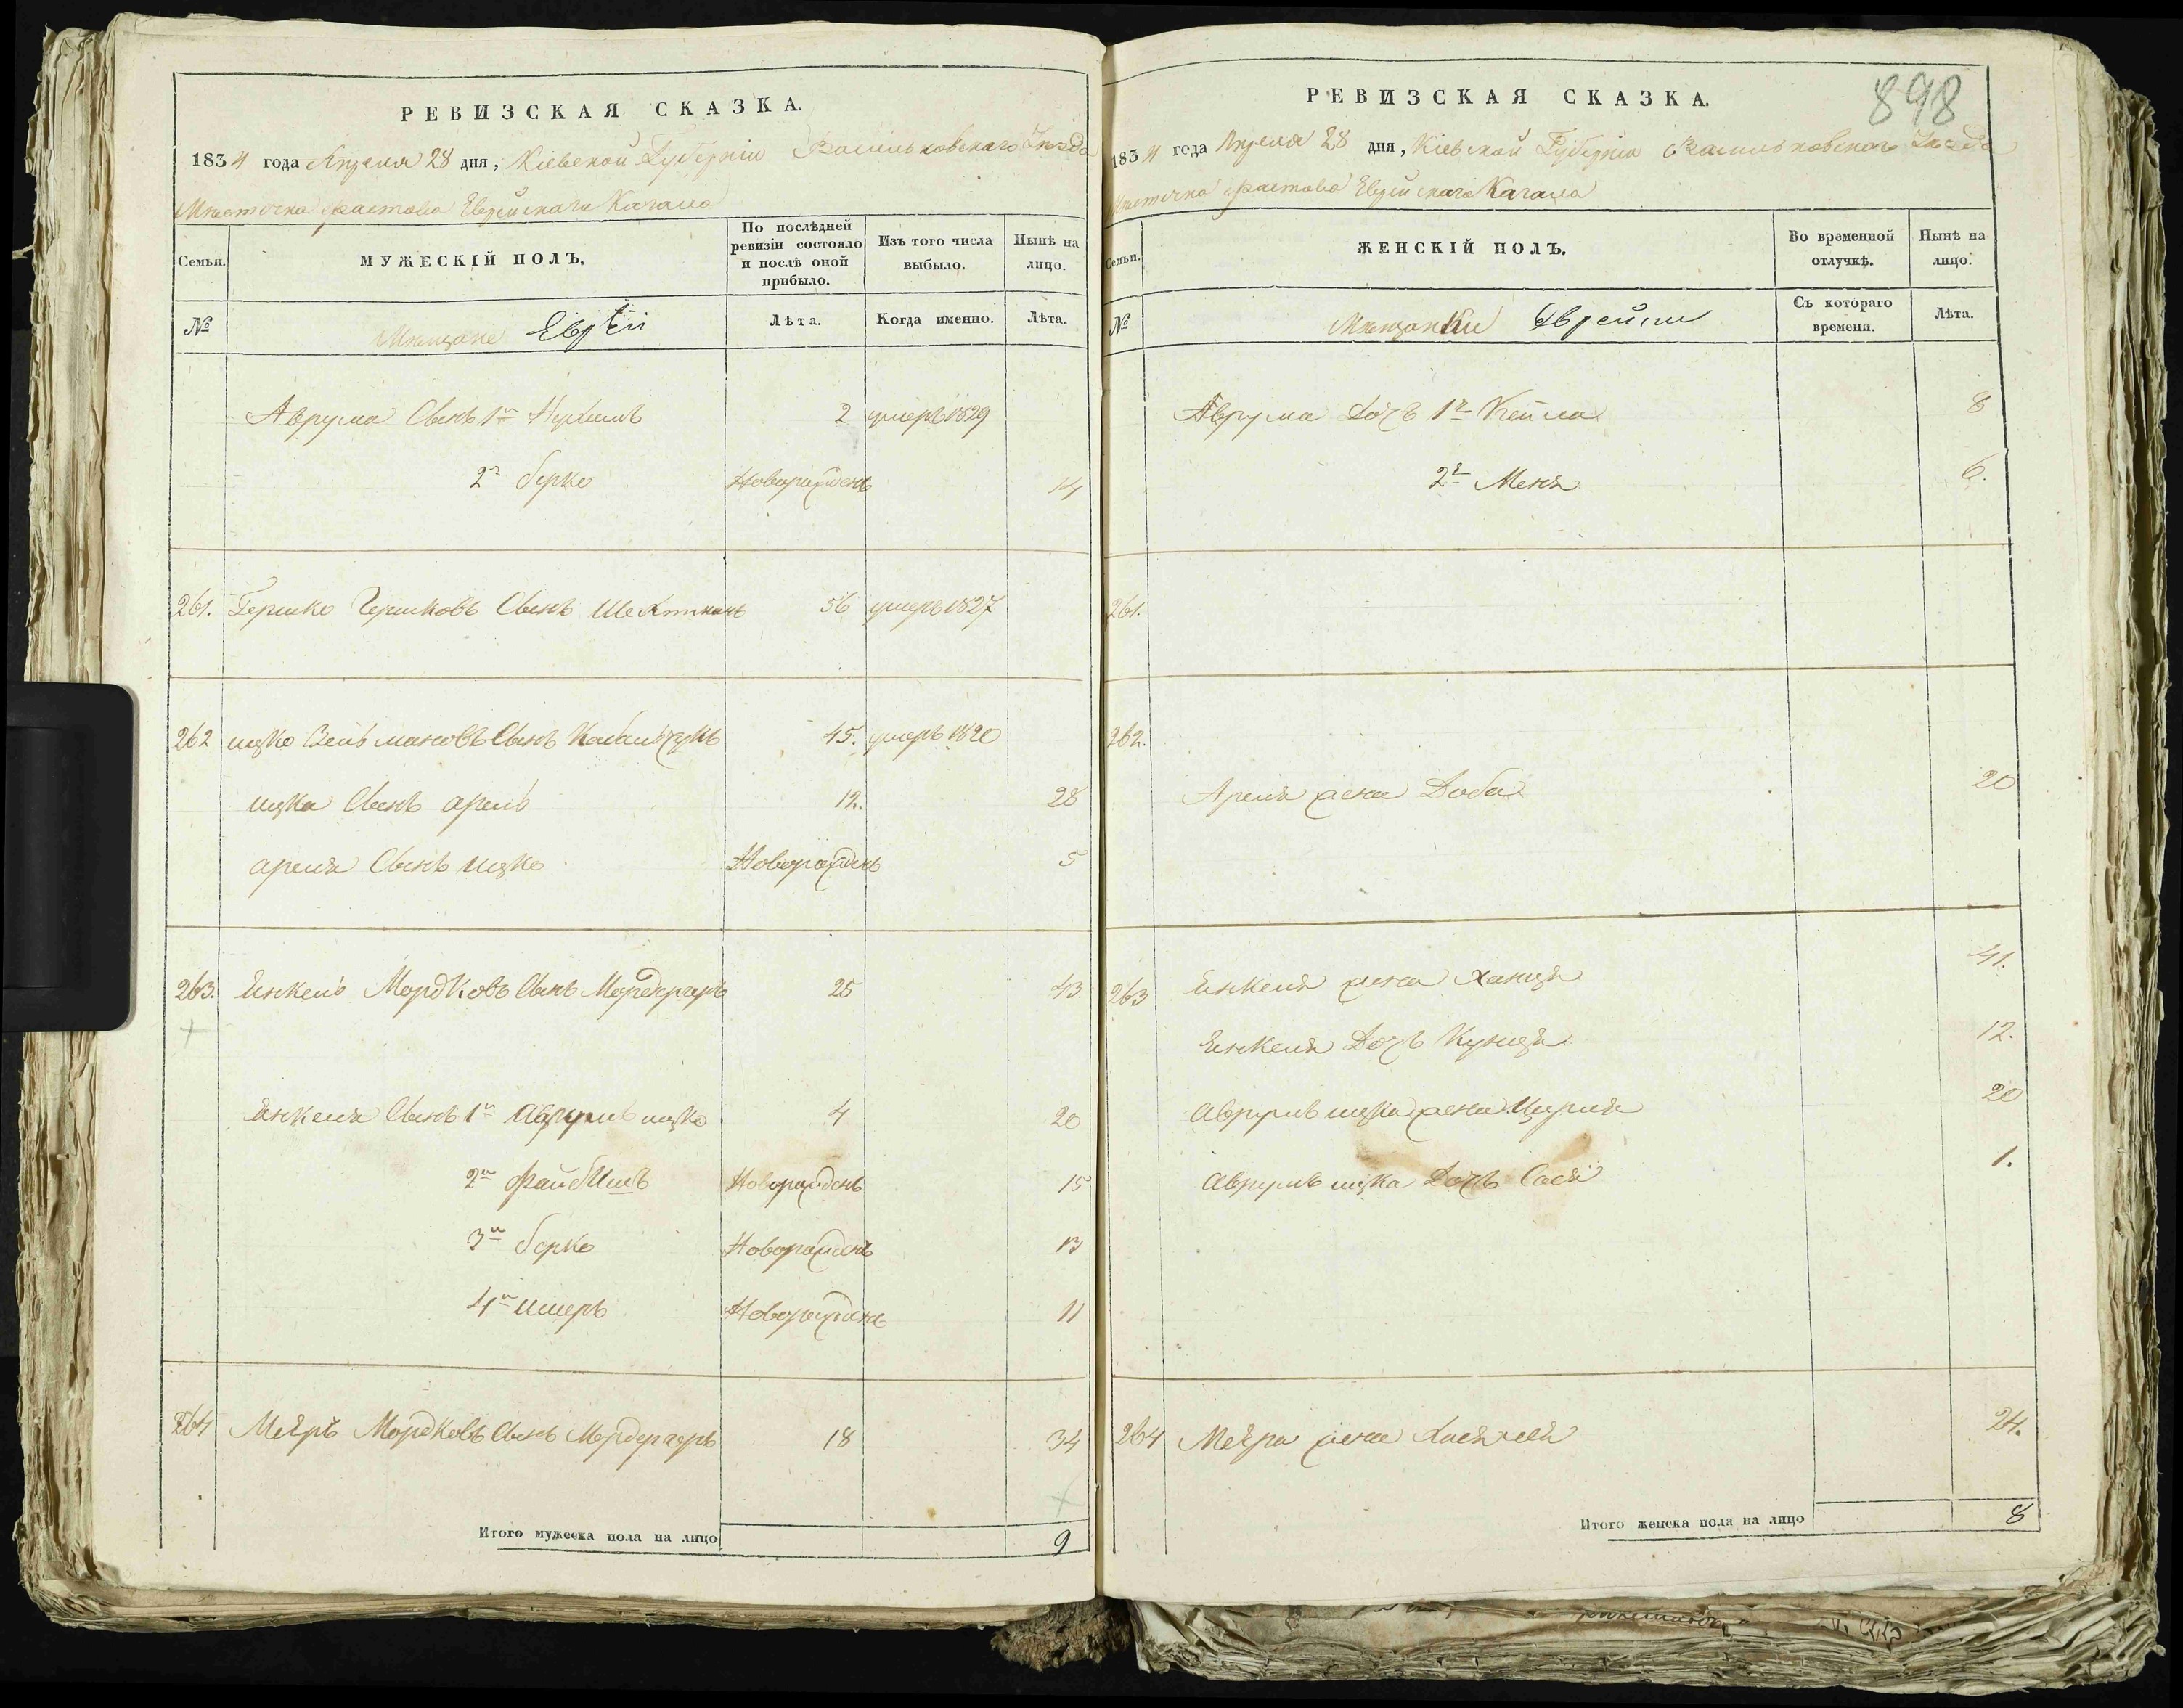 РЕВИЗСКАЯ СКАЗКА.
1834 года Апреля 28 дня, Кіевской Губерніи Васильковского Уѣзда
Мѣстечка Фастова Еврейскаго Кагала
Семьи.
МУЖЕСКІЙ ПОЛЪ.
По послѣдней ревизіи состояло и послѣ оной прибыло.
Изъ того числа выбыло.
Нынѣ на лицо.
№
Мѣщане Евреи
Лѣта.
Когда именно.
Лѣта.
Аврума Сынъ 1й 2 умеръ 1829
2й берко Новорожденъ 14
261. Гершко Гершковъ Сынъ Шектманъ 56 умеръ 1827
262 ицко Зельмановъ Сынъ 45. умеръ 1820
ицка Сынъ арель 12. 28
ареля Сынъ ицко Новорожденъ 5
263. Янкель Мордковъ Сынъ Мордергеръ 25 43
Янкеля Сынъ 1й Аврумъ ицко 4 20
2й Файбишъ Новорожденъ 15
3й берко Новорожденъ 13
4й Ушеръ Новорожденъ 11
264 Меяръ Мордковъ Сынъ Мордергеръ 18 34
Итого мужеска пола на лицо 9
898
РЕВИЗСКАЯ СКАЗКА.
1834 года Апреля 28 дня, Кіевской Губерніи Васильковского Уѣзда
Мѣстечка Фастова Еврейскаго Кагала
Семьи.
ЖЕНСКІЙ ПОЛЪ.
Во временной отлучкѣ.
Нынѣ на лицо.
№
Мѣщанки Еврейки
Съ котораго времени.
Лѣта.
Аврума Дочь 1я Кейла 8
2я Меня 6.
261.
262.
Ареля жена Доба 20
263 Янкеля жена Ханця 41.
Янкеля Дочь Кунця 12.
Аврумъ ицка жена Цирля 20
Аврумъ ицка Дочь Сося 1.
264 Меяра жена 24.
Итого женска пола на лицо 8